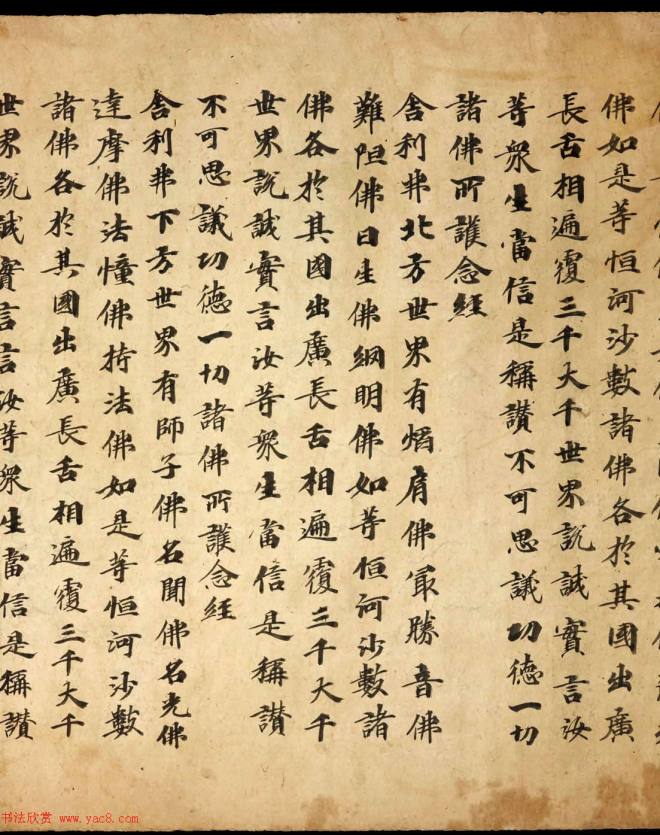 佛如是等恒河沙數諸佛各於其國出廣
長舌相遍覆三千大千世界說誠實言汝
等衆生當信是稱讚不可思議功德一切
諸佛所護念經
舍利弗北方世界有焰肩佛冣勝音佛
難阻佛日生佛網明佛如等恒河沙數諸
佛各於其國出廣長舌相遍覆三千大千
世界說誠實言汝等衆生當信是稱讚
不可思議功德一切諸佛所護念經
舍利弗下方世界有師子佛名聞佛名光佛
達摩佛法幢佛持法佛如是等恒河沙數
諸佛各於其國出廣長舌相遍覆三千大千
世界說誠實言言汝等衆生當信是稱讚
书法欣赏 www.yac8.com